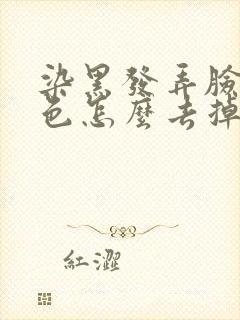 染黑發弄臉
色怎麼去掉
紅澀